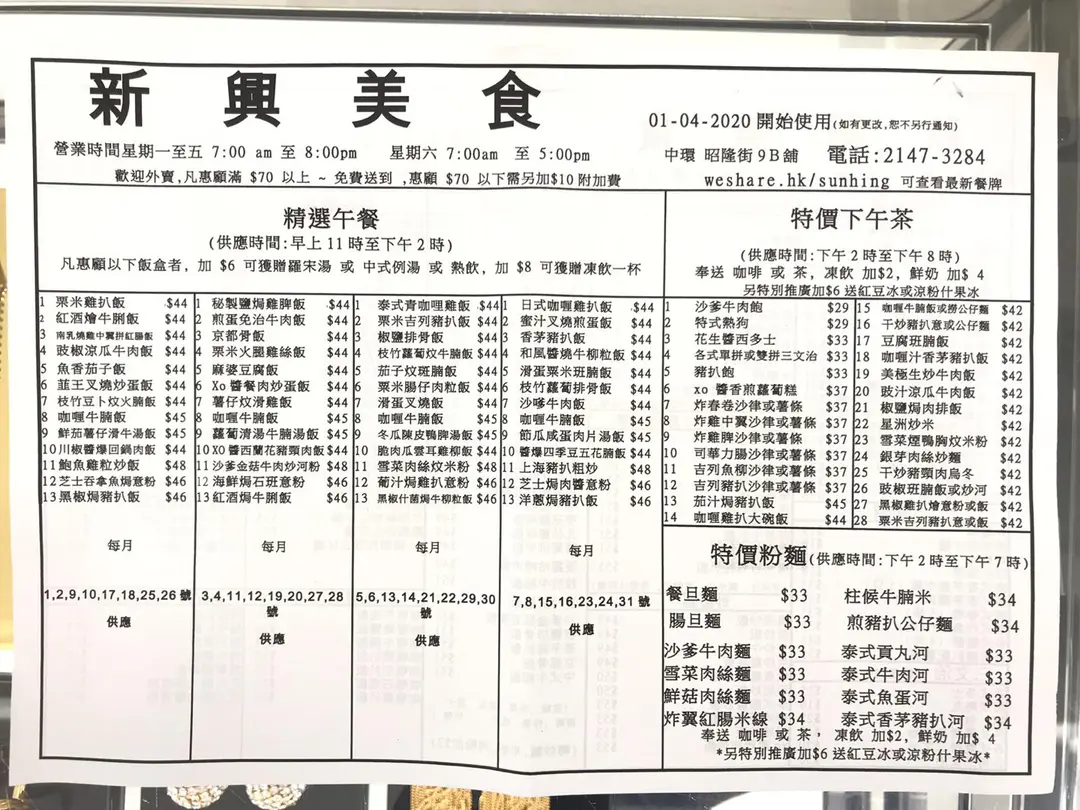 新興美食
01-04-2020 開始使用(如有更改,恕不另行通知)
營業時間星期一至五 7:00 am 至 8:00pm 星期六 7:00am 至 5:00pm
中環 昭隆街9B舖 電話:2147-3284
歡迎外賣,凡惠顧滿 $70 以上 ~ 免費送到 ,惠顧 $70 以下需另加$10附加費
weshare.hk/sunhing 可查看最新餐牌
精選午餐
(供應時間:早上11時至下午2時)
凡惠顧以下飯盒者, 加 $6 可獲贈羅宋湯 或 中式例湯 或 熱飲, 加 $8 可獲贈凍飲一杯
1 粟米雞扒飯 $44
2 紅酒燴牛脷飯 $44
3 南乳燒雞中翼拼紅腸飯 $44
4 豉椒涼瓜牛肉飯 $44
5 魚香茄子飯 $44
6 韮王叉燒炒蛋飯 $44
7 枝竹豆卜炆火腩飯 $44
8 咖喱牛腩飯 $45
9 鮮茄薯仔滑牛湯飯 $45
10 川椒醬爆回鍋飯 $44
11 鮑魚雞粒炒飯 $48
12 芝士吞拿魚焗意粉 $46
13 黑椒焗豬扒飯 $46
每月
1,2,9,10,17,18,25,26 號
供應
1 秘製鹽焗雞脾飯 $44
2 煎蛋免治牛肉飯 $44
3 京都骨飯 $44
4 粟米火腿雞絲飯 $44
5 麻婆豆腐飯 $44
6 Xo 醬餐肉炒蛋飯 $44
7 薯仔炆滑雞飯 $44
8 咖喱牛腩飯 $45
9 蘿蔔清湯牛腩湯飯 $45
10 XO醬西蘭花豬頸肉飯 $44
11 沙爹金菇牛肉炒河粉 $48
12 海鮮焗石班意粉 $46
13 紅酒焗牛脷飯 $46
每月
3,4,11,12,19,20,27,28
號
供應
1 泰式青咖哩雞飯 $44
2 粟米吉列豬扒飯 $44
3 椒鹽排骨飯 $44
4 枝竹蘿蔔炆牛腩飯 $44
5 茄子炆班腩飯 $44
6 粟米腸仔肉粒飯 $44
7 滑蛋叉燒飯 $44
8 咖喱牛腩飯 $45
9 冬瓜陳皮鴨脾湯飯 $45
10 脆肉瓜雲耳雞柳飯 $44
11 雪菜肉絲炆米粉 $48
12 葡汁焗雞扒意粉 $46
13 黑椒什菌焗牛柳粒飯 $46
每月
5,6,13,14,21,22,29,30
號
供應
1 日式咖喱雞扒飯 $44
2 蜜汁叉燒煎蛋飯 $44
3 香茅豬扒飯 $44
4 和風醬燒牛柳粒飯 $44
5 滑蛋粟米班腩飯 $44
6 枝竹蘿蔔排骨飯 $44
7 沙嗲牛肉飯 $44
8 咖喱牛腩飯 $45
9 節瓜咸蛋肉片湯飯 $45
10 醬爆四季豆五花腩飯 $44
11 上海豬扒粗炒 $48
12 芝士焗肉醬意粉 $46
13 洋蔥焗豬扒飯 $46
每月
7,8,15,16,23,24,31 號
供應
特價下午茶
(供應時間:下午2時至下午8時)
奉送 咖啡 或 茶, 凍飲 加$2, 鮮奶 加$ 4
另特別推廣加$6送紅豆冰或涼粉什果冰
1 沙爹牛肉飽 $29
2 特式熱狗 $29
3 花生醬西多士 $33
4 各式單拼或雙拼三文治 $33
5 豬扒飽 $33
6 xo 醬香煎蘿蔔糕 $37
7 炸春卷沙律或薯條 $37
8 炸雞中翼沙律或薯條 $37
9 炸雞脾沙律或薯條 $37
10 司華力腸沙律或薯條 $37
11 吉列魚柳沙律或薯條 $37
12 吉列豬扒沙律或薯條 $37
13 茄汁焗豬扒飯 $45
14 咖喱雞扒大碗飯 $44
15 咖喱牛腩飯或撈公仔麵 $42
16 干炒豬扒意或公仔麵 $42
17 豆腐班腩飯 $42
18 咖喱汁香茅豬扒飯 $42
19 美極生炒牛肉飯 $42
20 豉汁涼瓜牛肉飯 $42
21 椒鹽焗肉排飯 $42
22 星洲炒米 $42
23 雪菜煙鴨胸炆米粉 $42
24 銀芽肉絲炒麵 $42
25 干炒豬頸肉烏冬 $42
26 豉椒班腩飯或炒河 $42
27 黑椒雞扒燴意粉或飯 $42
28 粟米吉列豬扒意或飯 $42
特價粉麵(供應時間:下午2時至下午7時)
餐旦麵 $33 柱候牛腩米 $34
腸旦麵 $33 煎豬扒公仔麵 $34
沙爹牛肉麵 $33 泰式貢丸河 $33
雪菜肉絲麵 $33 泰式牛肉河 $33
鮮菇肉絲麵 $33 泰式魚蛋河 $33
炸翼紅腸米線 $34 泰式香茅豬扒河 $34
奉送 咖啡 或 茶, 凍飲 加$2, 鮮奶 加$ 4
*另特別推廣加$6送紅豆冰或涼粉什果冰*